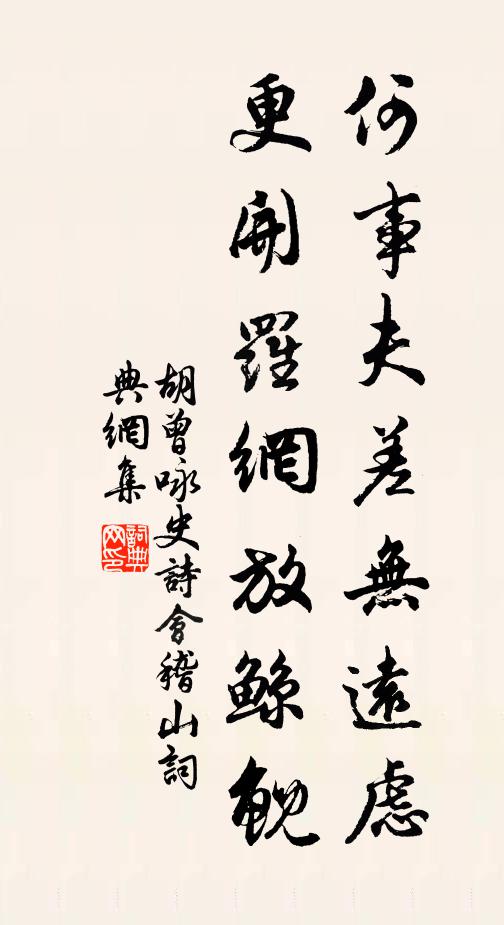 何事夫差無遠慮
更開羅網放鯨鯢
胡曾咏史詩會稽山詞
典網集
詞典網印